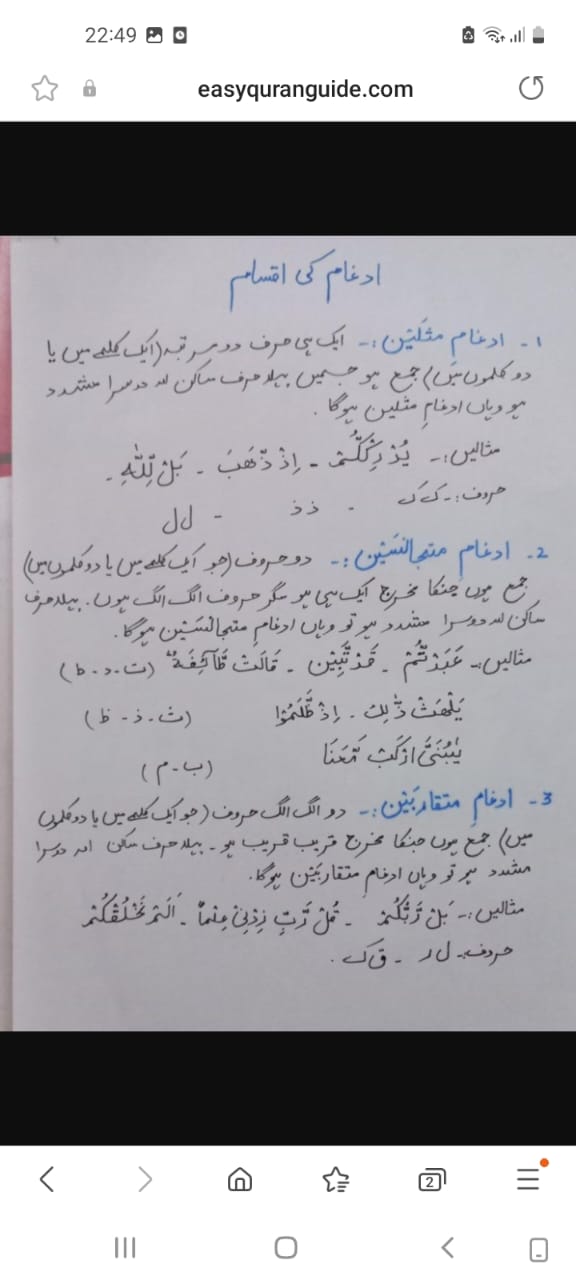 22:49
easyquranguide.com
ادغام کی اقسام
1- ادغامِ مثلَین :- ایک ہی حرف دو مرتبہ (ایک کلمے میں یا
دو کلموں میں) جمع ہو جسمیں پہلا حرف ساکن اور دوسرا مشدد
ہو وہاں ادغامِ مثلین ہوگا ۔
مثالیں :- یُدْرِكْكُّمْ - اِذْ ذَّهَبَ - بَلْ لِّلّٰهِ ۔
حروف :- ک ک - ذ ذ - ل ل
2- ادغامِ متجانسَین :- دو حروف (جو ایک کلمے میں یا دو کلموں میں)
جمع ہوں جنکا مخرج ایک ہی ہو مگر حروف الگ الگ ہوں ۔ پہلا حرف
ساکن اور دوسرا مشدد ہو تو وہاں ادغامِ متجانسَین ہوگا ۔
مثالیں :- عَبَدْتُّمْ - قَدْ تَّبَيَّنَ - قَالَتْ طَّآئِفَةٌ (ت - د - ط)
يَلْهَثْ ذّٰلِكَ - اِذْ ظَّلَمُوْا (ث - ذ - ظ)
يٰبُنَيَّ ارْكَبْ مَّعَنَا (ب - م)
3- ادغامِ متقاربَین :- دو الگ الگ حروف (جو ایک کلمے میں یا دو کلموں
میں) جمع ہوں جنکا مخرج قریب قریب ہو ۔ پہلا حرف ساکن اور دوسرا
مشدد ہو تو وہاں ادغامِ متقاربَین ہوگا ۔
مثالیں :- بَلْ رَّبُّكُمْ - قُلْ رَّبِّ زِدْنِيْ عِلْماً - اَلَمْ نَخْلُقْكُّمْ
حروف :- ل ر - ق ک ۔
2